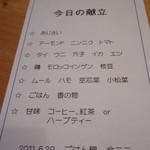 今日の献立
☆ あじさい
☆ アーモンド ニンニク トマト
☆ タイ ウニ 穴子 イカ エン
☆ 鶏 モロッコインゲン 枝豆
☆ ムール ハモ 空芯菜 小松菜
☆ ごはん 香の物
☆ 甘味 コーヒー、紅茶 or
ハーブティー
2011.6.29 ごはん屋